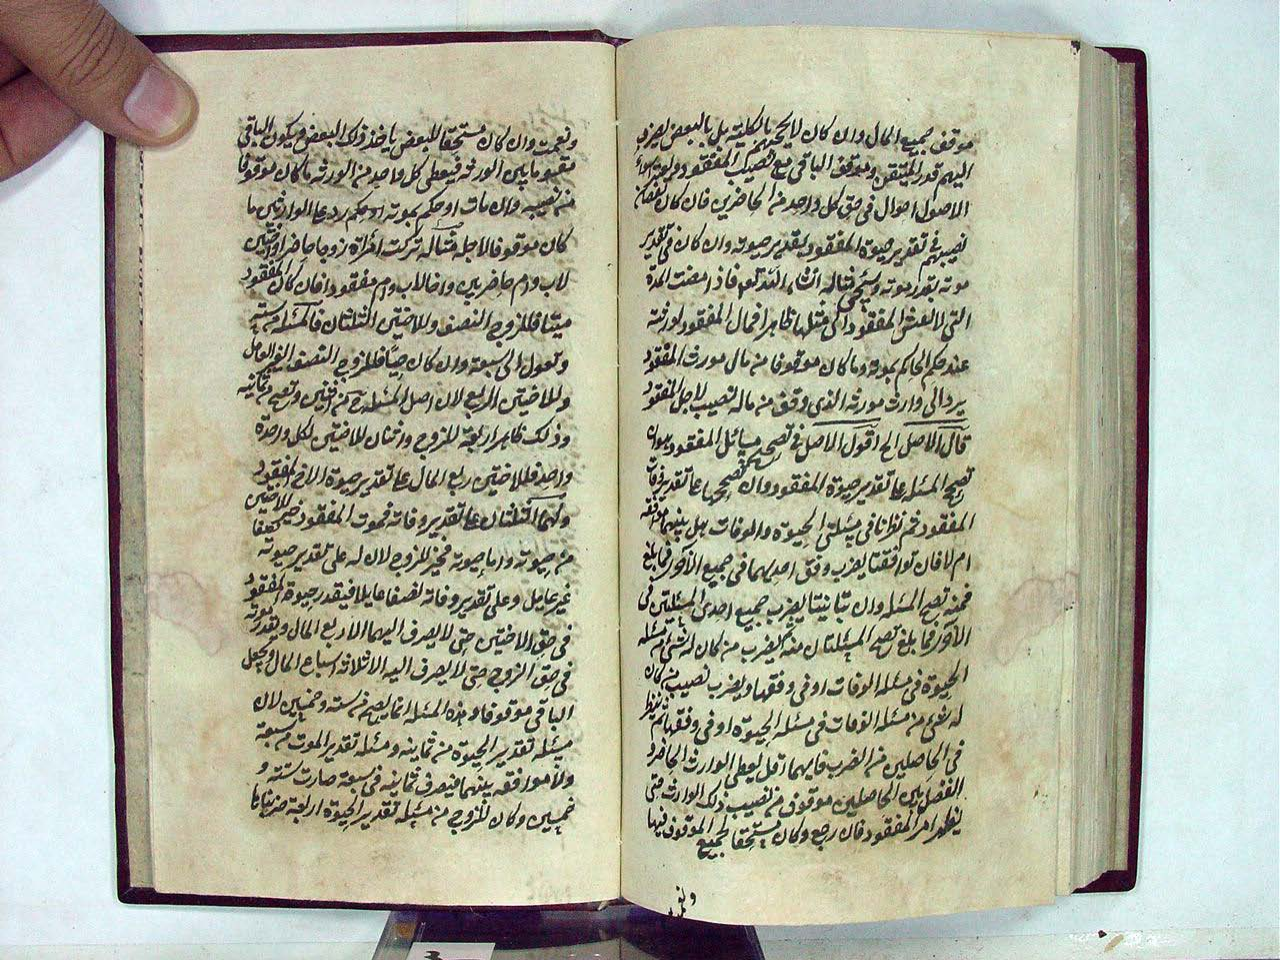 موقف جميع المال وان كان لا يحجبهم بالكلية بل بالبعض يصرف
اليهم قدر المتيقن وموقف الباقي مع نصيب المفقود
الاصول احوال في حق كل واحد من الحاضرين فان كان نقص
نصيبهم في تقدير حيوة المفقود يقدر حيوته وان كان في تقدير
موته يقدر موته وسيجئ مثاله ان شاء الله تعالى فاذا مضت المدة
التي لا يعيش المفقود الى مثلها ظاهرا فمال المفقود لورثته
عند حكم الحاكم بموته وما كان موقوفا من مال مورث المفقود
يرد الى وارث مورثه الذي وقف من ماله نصيب لاجل المفقود
قال الاصل الخ اقول الاصل في تصحيح مسائل المفقود هو ان
تصحح المسئلة على تقدير حيوة المفقود وان تصححها على تقدير وفات
المفقود ثم نظرنا في مسئلتي الحيوة والوفات هل بينهما موافقة
ام لا فان توافقتا يضرب وفق احديهما في جميع الاخر فما بلغ
فمنه تصح المسئلة وان تباينتا يضرب جميع احدى المسئلتين في
الآخر فما بلغ تصح المسئلتان منه ثم يضرب من كان له شئ من مسئلة
الحيوة في مسئلة الوفات او في وفقها ويضرب نصيب من كان
له شئ من مسئلة الوفات في مسئلة الحيوة او في وفقها ثم ينظر
في الحاصلين من الضرب فايهما اقل يعطى الوارث الحاضر و
الفضل بين الحاصلين موقوف من نصيب ذلك الوارث حتى
يظهر امر المفقود فان رجع وكان مستحقا لجميع الموقوف فبها
ونعمت وان كان مستحقا للبعض ياخذ ذلك البعض ويكون الباقي
مقسوما بين الورثة فيعطى كل واحد من الورثة ما كان موقوفا
من نصيبه وان مات او حكم بموته او حكم برد على الوارثين ما
كان موقوفا لاجله مثاله تركت امراة زوجا حاضرا واختين
لاب وام حاضرين واخا لاب وام مفقودا فان كان المفقود
ميتا فللزوج النصف وللاختين الثلثان فالمسئلة من ستة
وتعول الى سبعة وان كان حيا فللزوج النصف الغير العايل
وللاختين الربع لان اصل المسئلة ح من اثنين وتصح من ثمانية
وذلك ظاهر اربعة للزوج واثنان للاختين لكل واحدة
واحد فللاختين ربع المال على تقدير حيوة الاخ المفقود
ولهما الثلثان على تقدير وفاته فموت المفقود خير للاختين
من حيوته واما حيوته فخير للزوج لان له على تقدير حيوته
غير عايل وعلى تقدير وفاته نصفا عايلا فيقدر حيوة المفقود
في حق الاختين حتى لا يصرف اليهما الا ربع المال ويقدر موته
في حق الزوج حتى لا يصرف اليه الا ثلاثة اسباع المال ويجعل
الباقي موقوفا وهذه المسئلة انما تصح من ستة وخمسين لان
مسئلة تقدير الحيوة من ثمانية ومسئلة تقدير الموت من سبعة
ولا موافقة بينهما فيضرب ثمانية في سبعة صارت ستة و
خمسين وكان للزوج من مسئلة تقدير الحيوة اربعة ضربناها